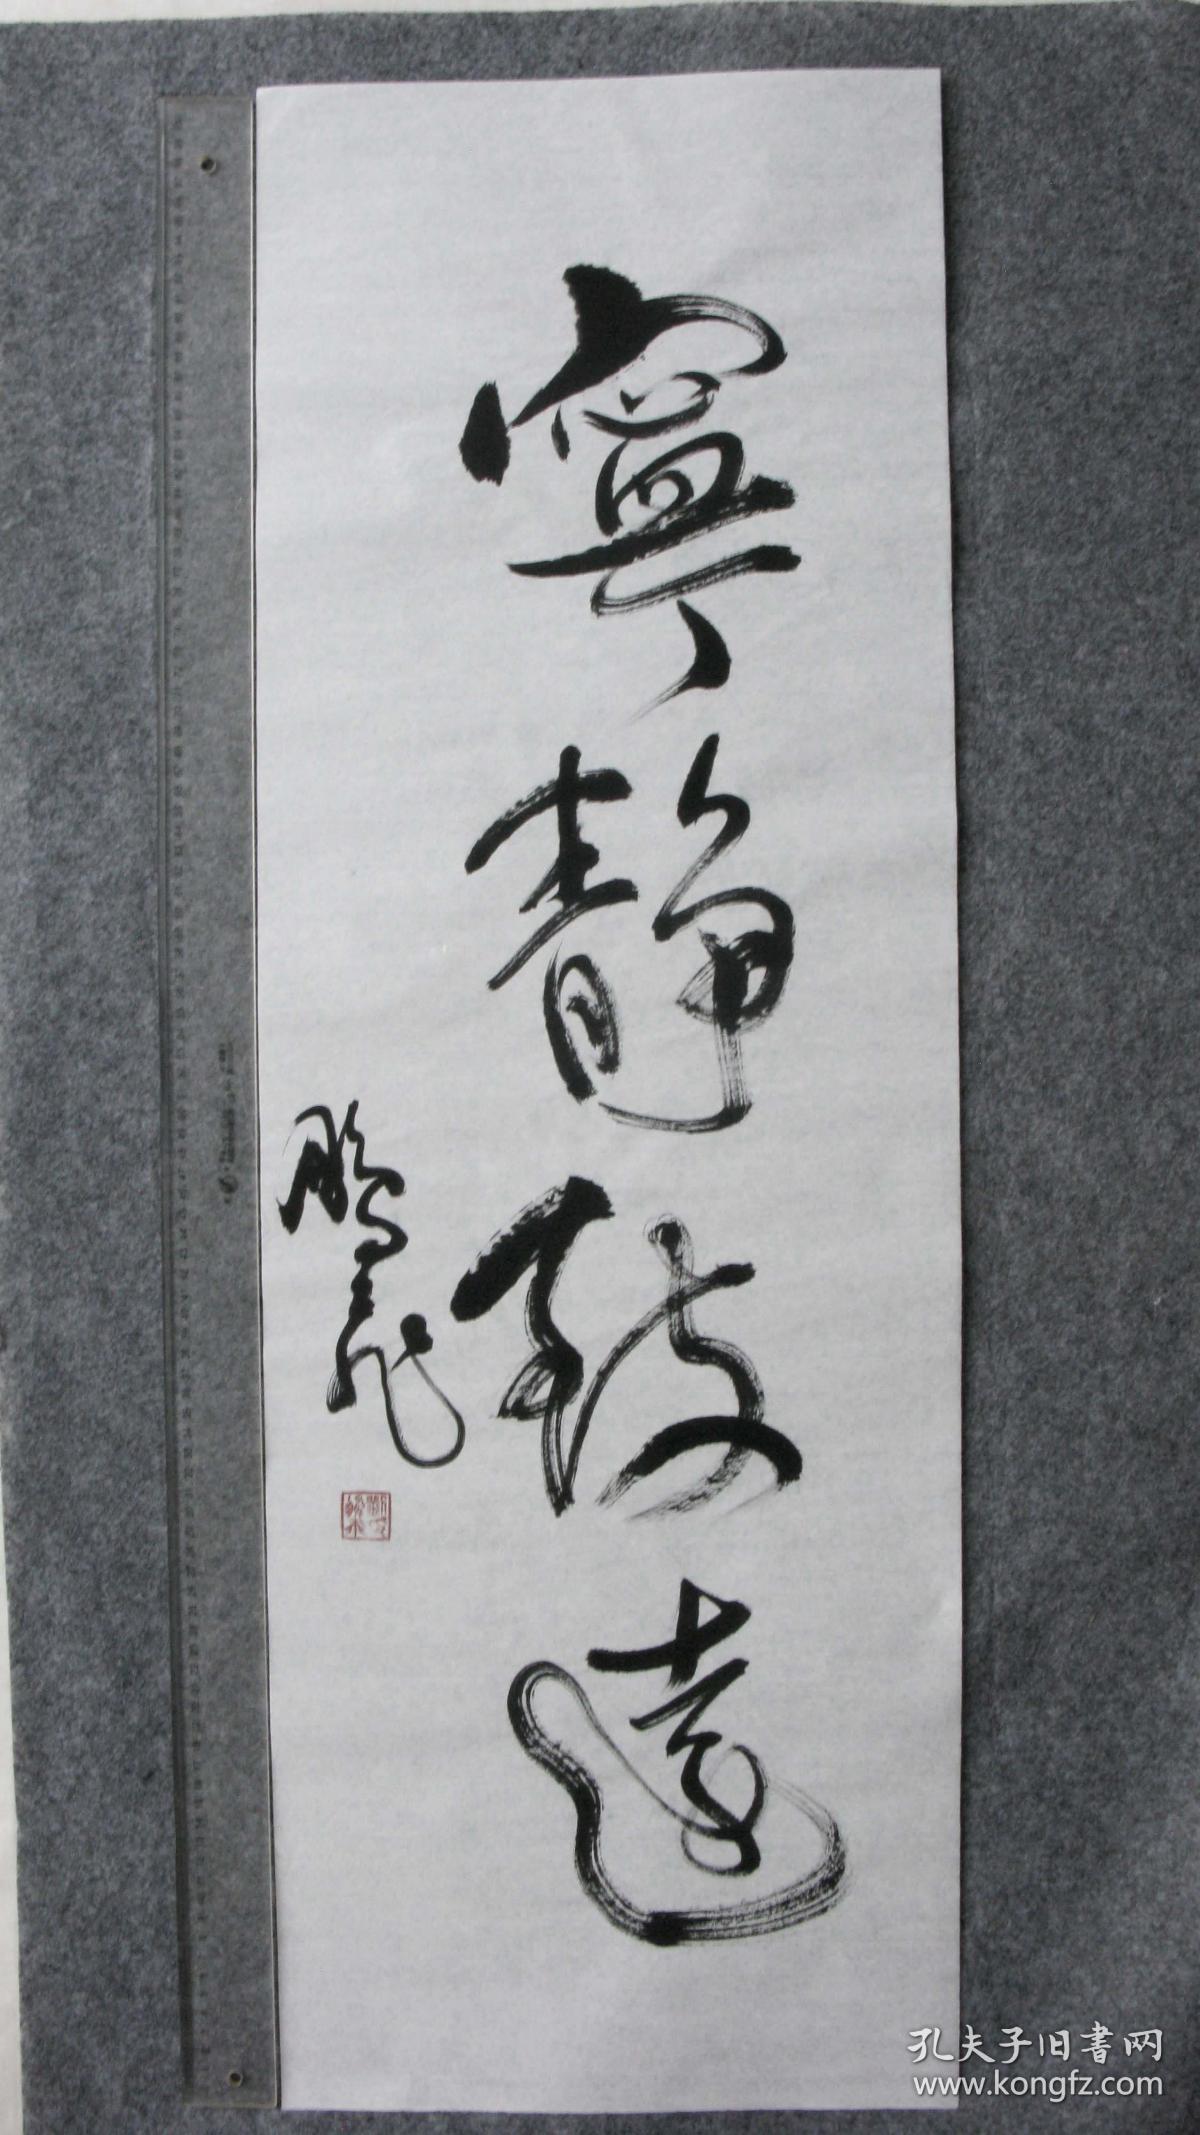 寧靜致遠
鵬飛
孔夫子旧书网
www.kongfz.com